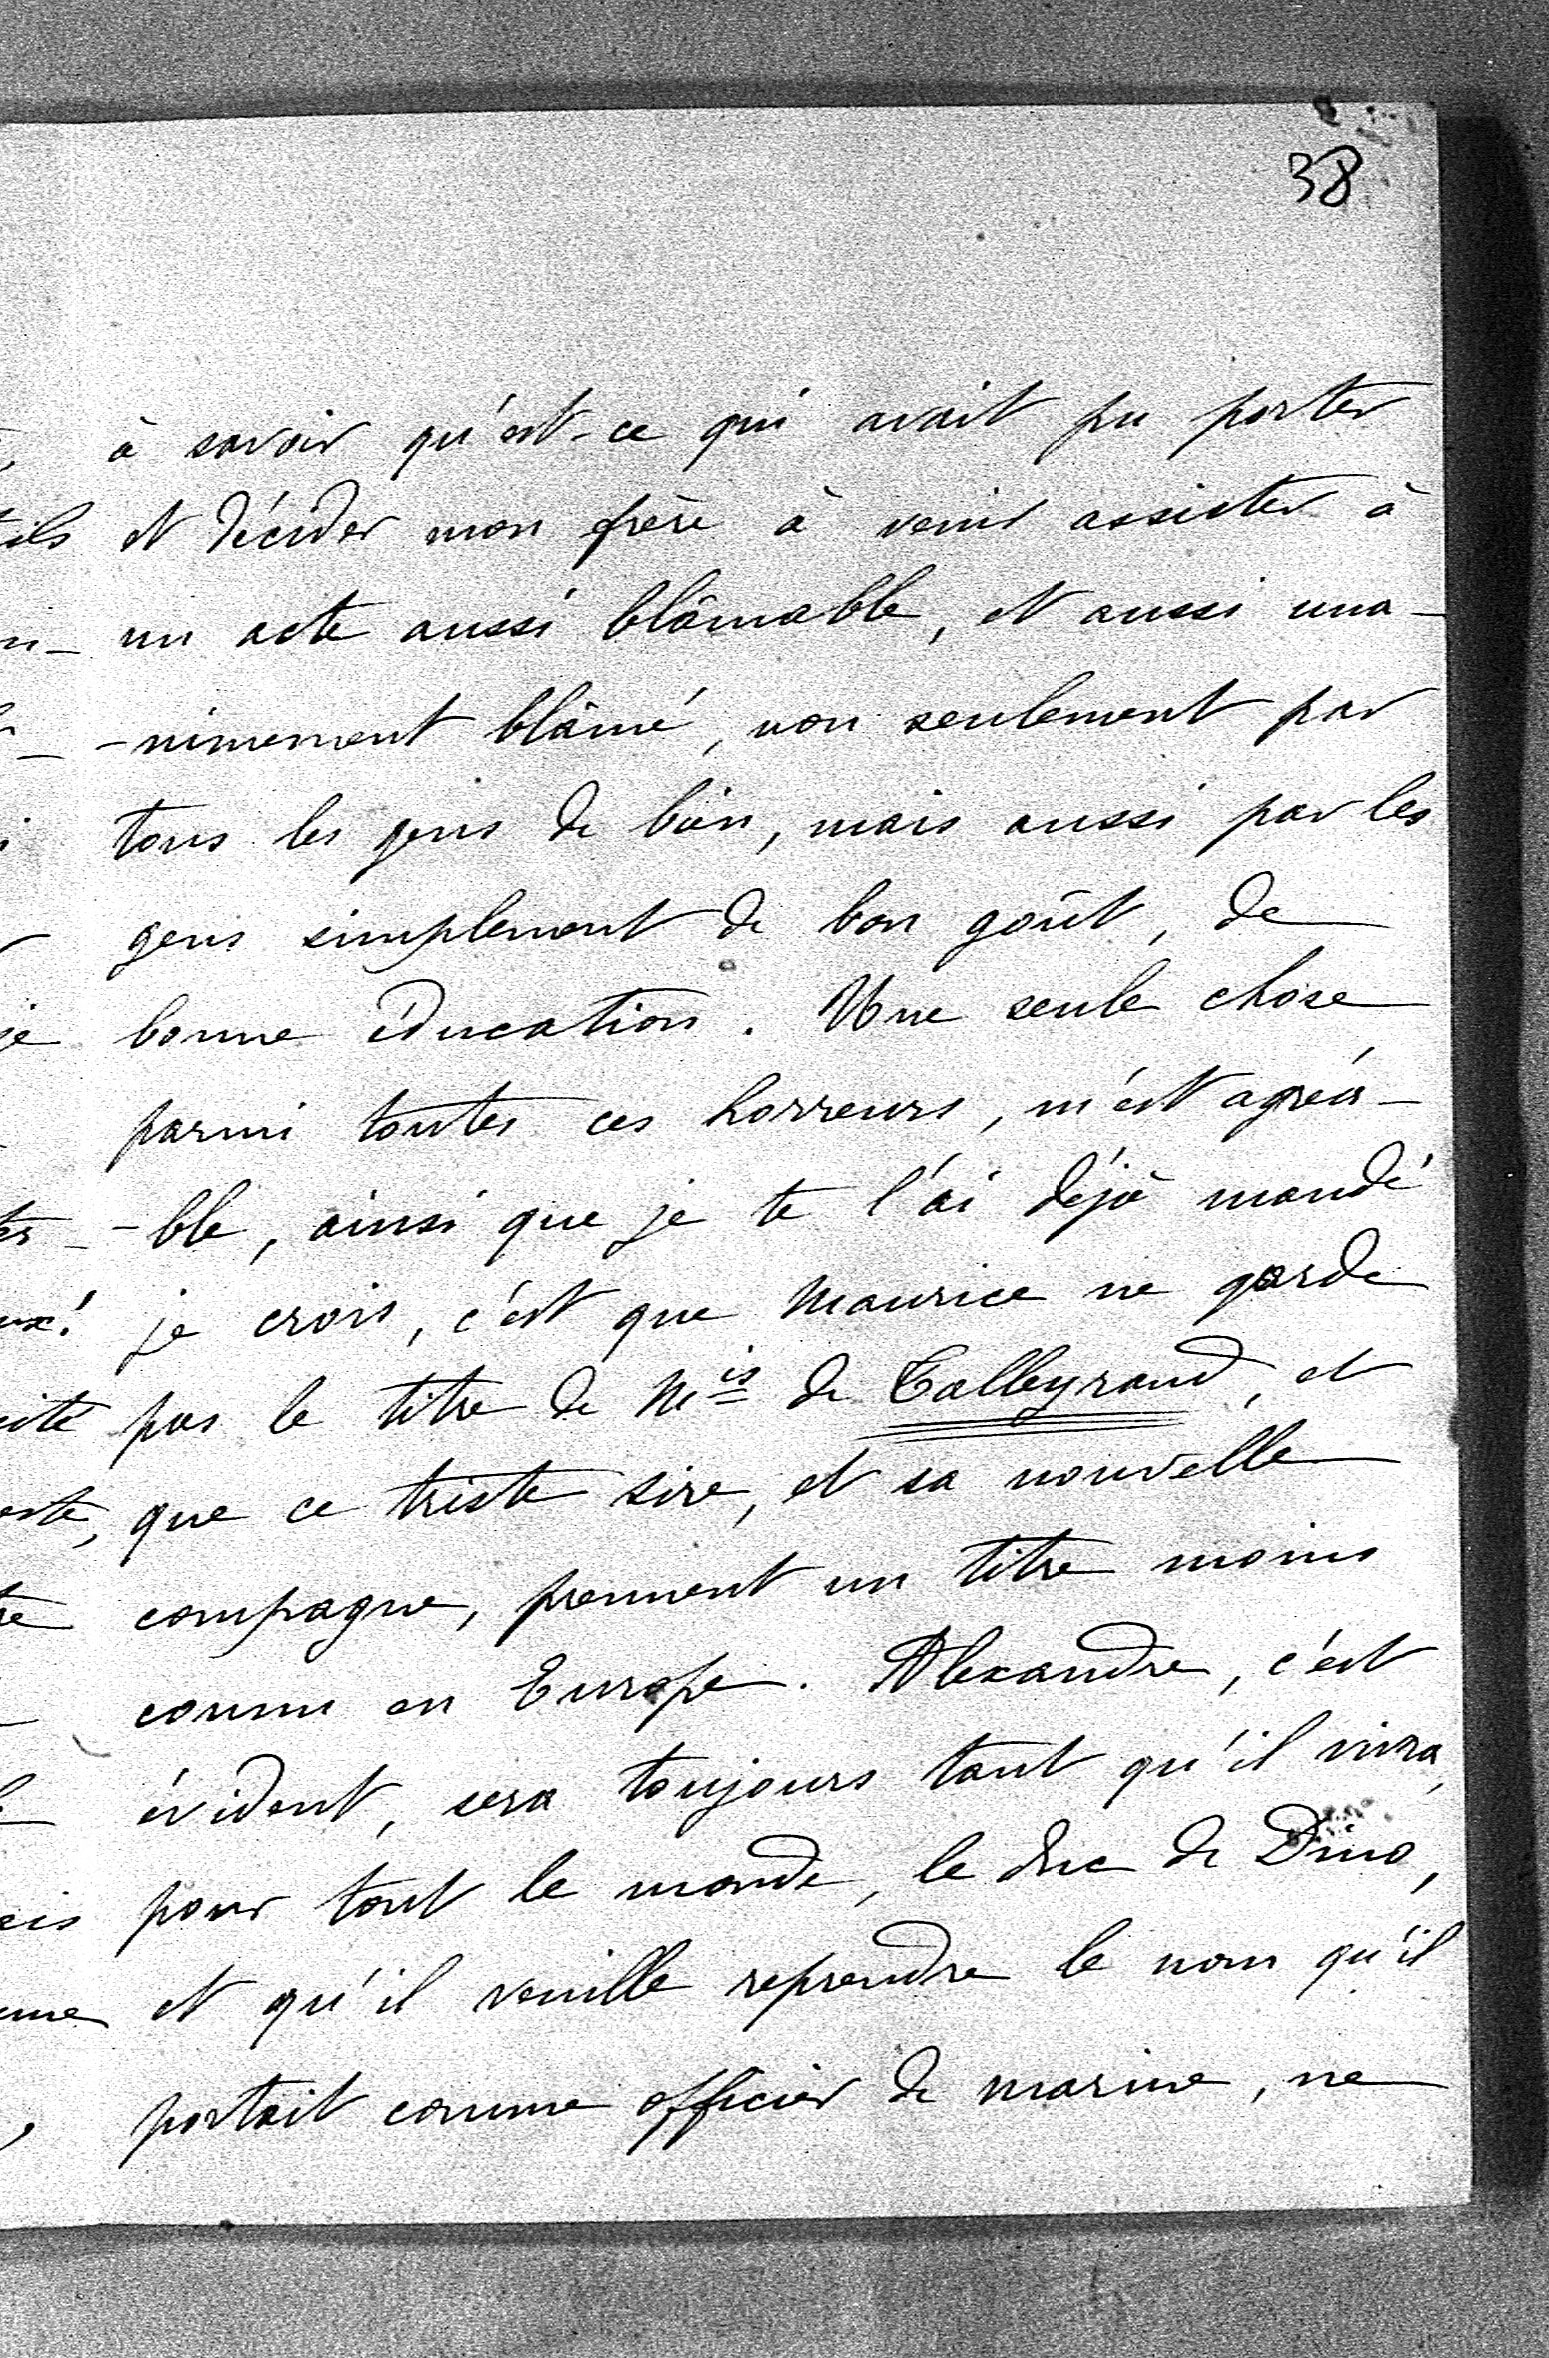 38
à savoir qu'est-ce qui avait pu porter
et décider mon frère à venir assister à
un acte aussi blâmable, et aussi una-
-nimement blâmé, non seulement par
tous les gens de bien, mais aussi par les
gens simplement de bon goût, de
bonne éducation. Une seule chose
parmi toutes ces horreurs, m'est agréa-
-ble, ainsi que je te l'ai déjà mandé
je crois, c'est que Maurice ne garde
pas le titre de Mis de Talleyrand, et
que ce triste sire, et sa nouvelle
compagne, prennent un titre moins
connu en Europe. Alexandre, c'est
évident, sera toujours tant qu'il vivra,
pour tout le monde, le duc de Dino,
et qu'il veuille reprendre le nom qu'il
portait comme officier de marine, ne